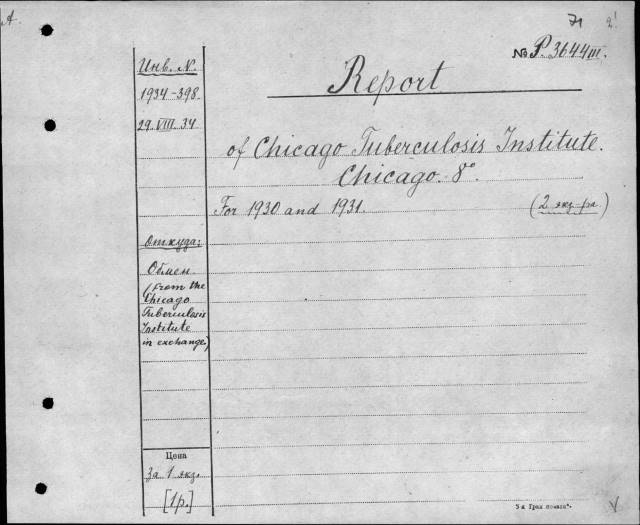 A.
71 2!
№ P. 3644 III.
Инв. N.
1934-398.
29. VIII. 34
Report
of Chicago Tuberculosis Institute.
Chicago. 8°.
For 1930 and 1931.
(2 экз-ра)
Откуда:
Обмен.
(from the
Chicago
Tuberculosis
Institute
in exchange)
Цена
За 1 экз.
[1р.]
3-я Граф.
V